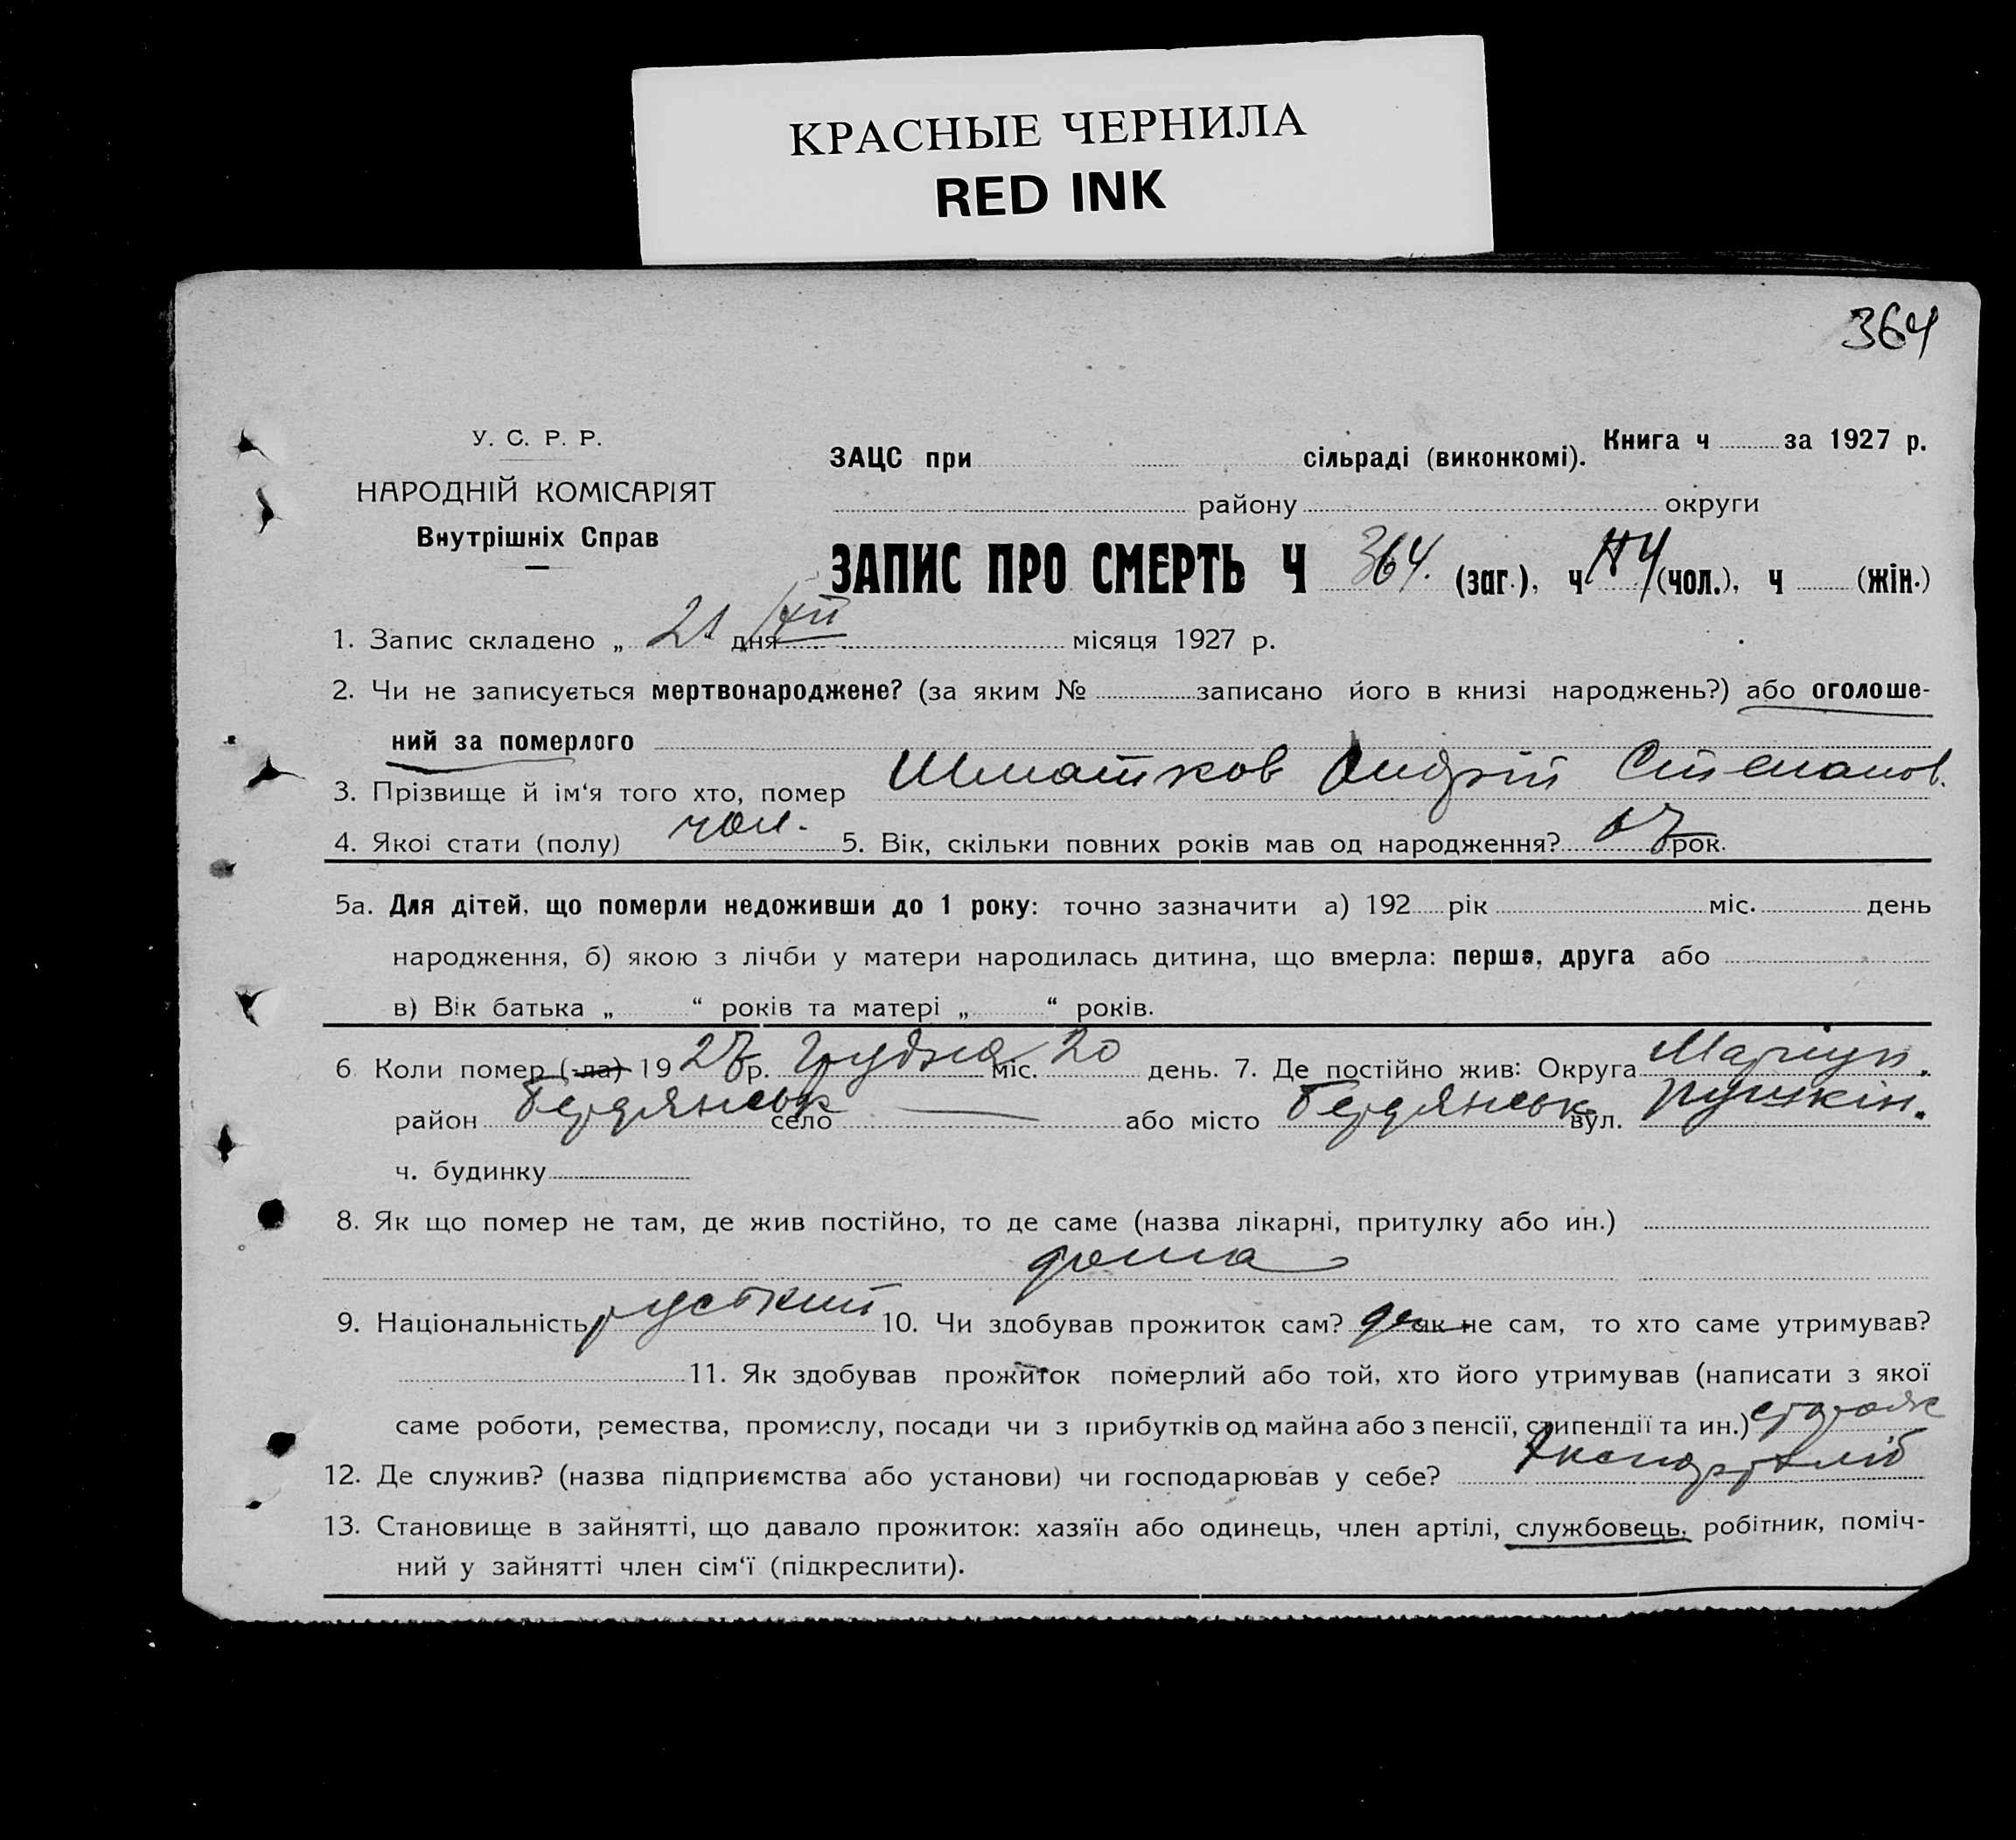 КРАСНЫЕ ЧЕРНИЛА
RED INK
364
У. С. Р. Р.
НАРОДНІЙ КОМІСАРІЯТ
Внутрішніх Справ
Книга ч за 1927 р.
ЗАЦС при сільраді (виконкомі).
району округи
ЗАПИС ПРО СМЕРТЬ Ч 364. (заг.), ч (чол.), ч (жін.)
1. Запис складено „ 21 “ дня XII місяця 1927 р.
2. Чи не записується мертвонароджене? (за яким № записано його в книзі народжень?) або оголоше-
ний за померлого
3. Прізвище й ім‘я того хто, помер Шматков Андрій Степанов.
4. Якоі стати (полу) чол. 5. Вік, скільки повних років мав од народження? рок.
5а. Для дітей, що померли недоживши до 1 року: точно зазначити а) 192 рік міс. день
народження, б) якою з лічби у матери народилась дитина, що вмерла: перша, друга або
в) Вік батька „ “ років та матері „ “ років.
6 Коли помер (-ла) 1927 р. грудня міс. 20 день. 7. Де постійно жив: Округа Маріуп.
район Бердянськ село — або місто Бердянськ вул. Пушкін.
ч. будинку
8. Як що помер не там, де жив постійно, то де саме (назва лікарні, притулку або ин.)
дома
9. Національність руський 10. Чи здобував прожиток сам? як не сам, то хто саме утримував?
11. Як здобував прожиток померлий або той, хто його утримував (написати з якої
саме роботи, ремества, промислу, посади чи з прибутків од майна або з пенсії, стипендії та ин.) сторож
12. Де служив? (назва підприємства або установи) чи господарював у себе? Експортхліб
13. Становище в зайнятті, що давало прожиток: хазяїн або одинець, член артілі, службовець, робітник, поміч-
ний у зайнятті член сім‘ї (підкреслити).